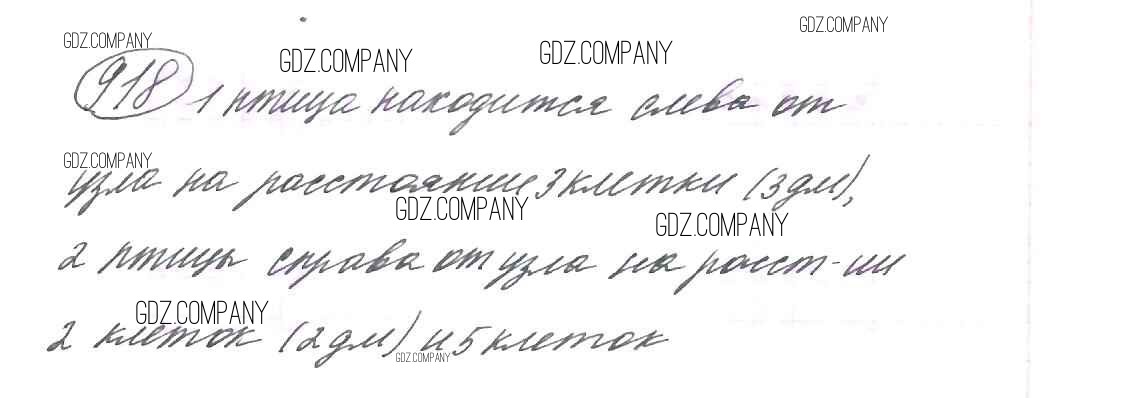 GDZ.COMPANY
GDZ.COMPANY
GDZ.COMPANY
GDZ.COMPANY
918 1 птица находится слева от
GDZ.COMPANY
узла на расстоянии 3 клетки (3дм),
GDZ.COMPANY
GDZ.COMPANY
2 птицы справа от узла на расст-ии
GDZ.COMPANY
2 клеток (2дм) и 5 клеток
GDZ.COMPANY